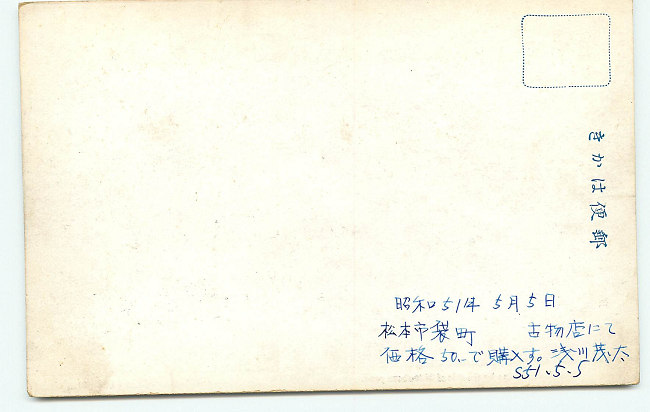 きかは便郵
昭和51年 5月5日
松本市袋町 古物店にて
価格50.-で購入す。浅川茂太
S51.5.5